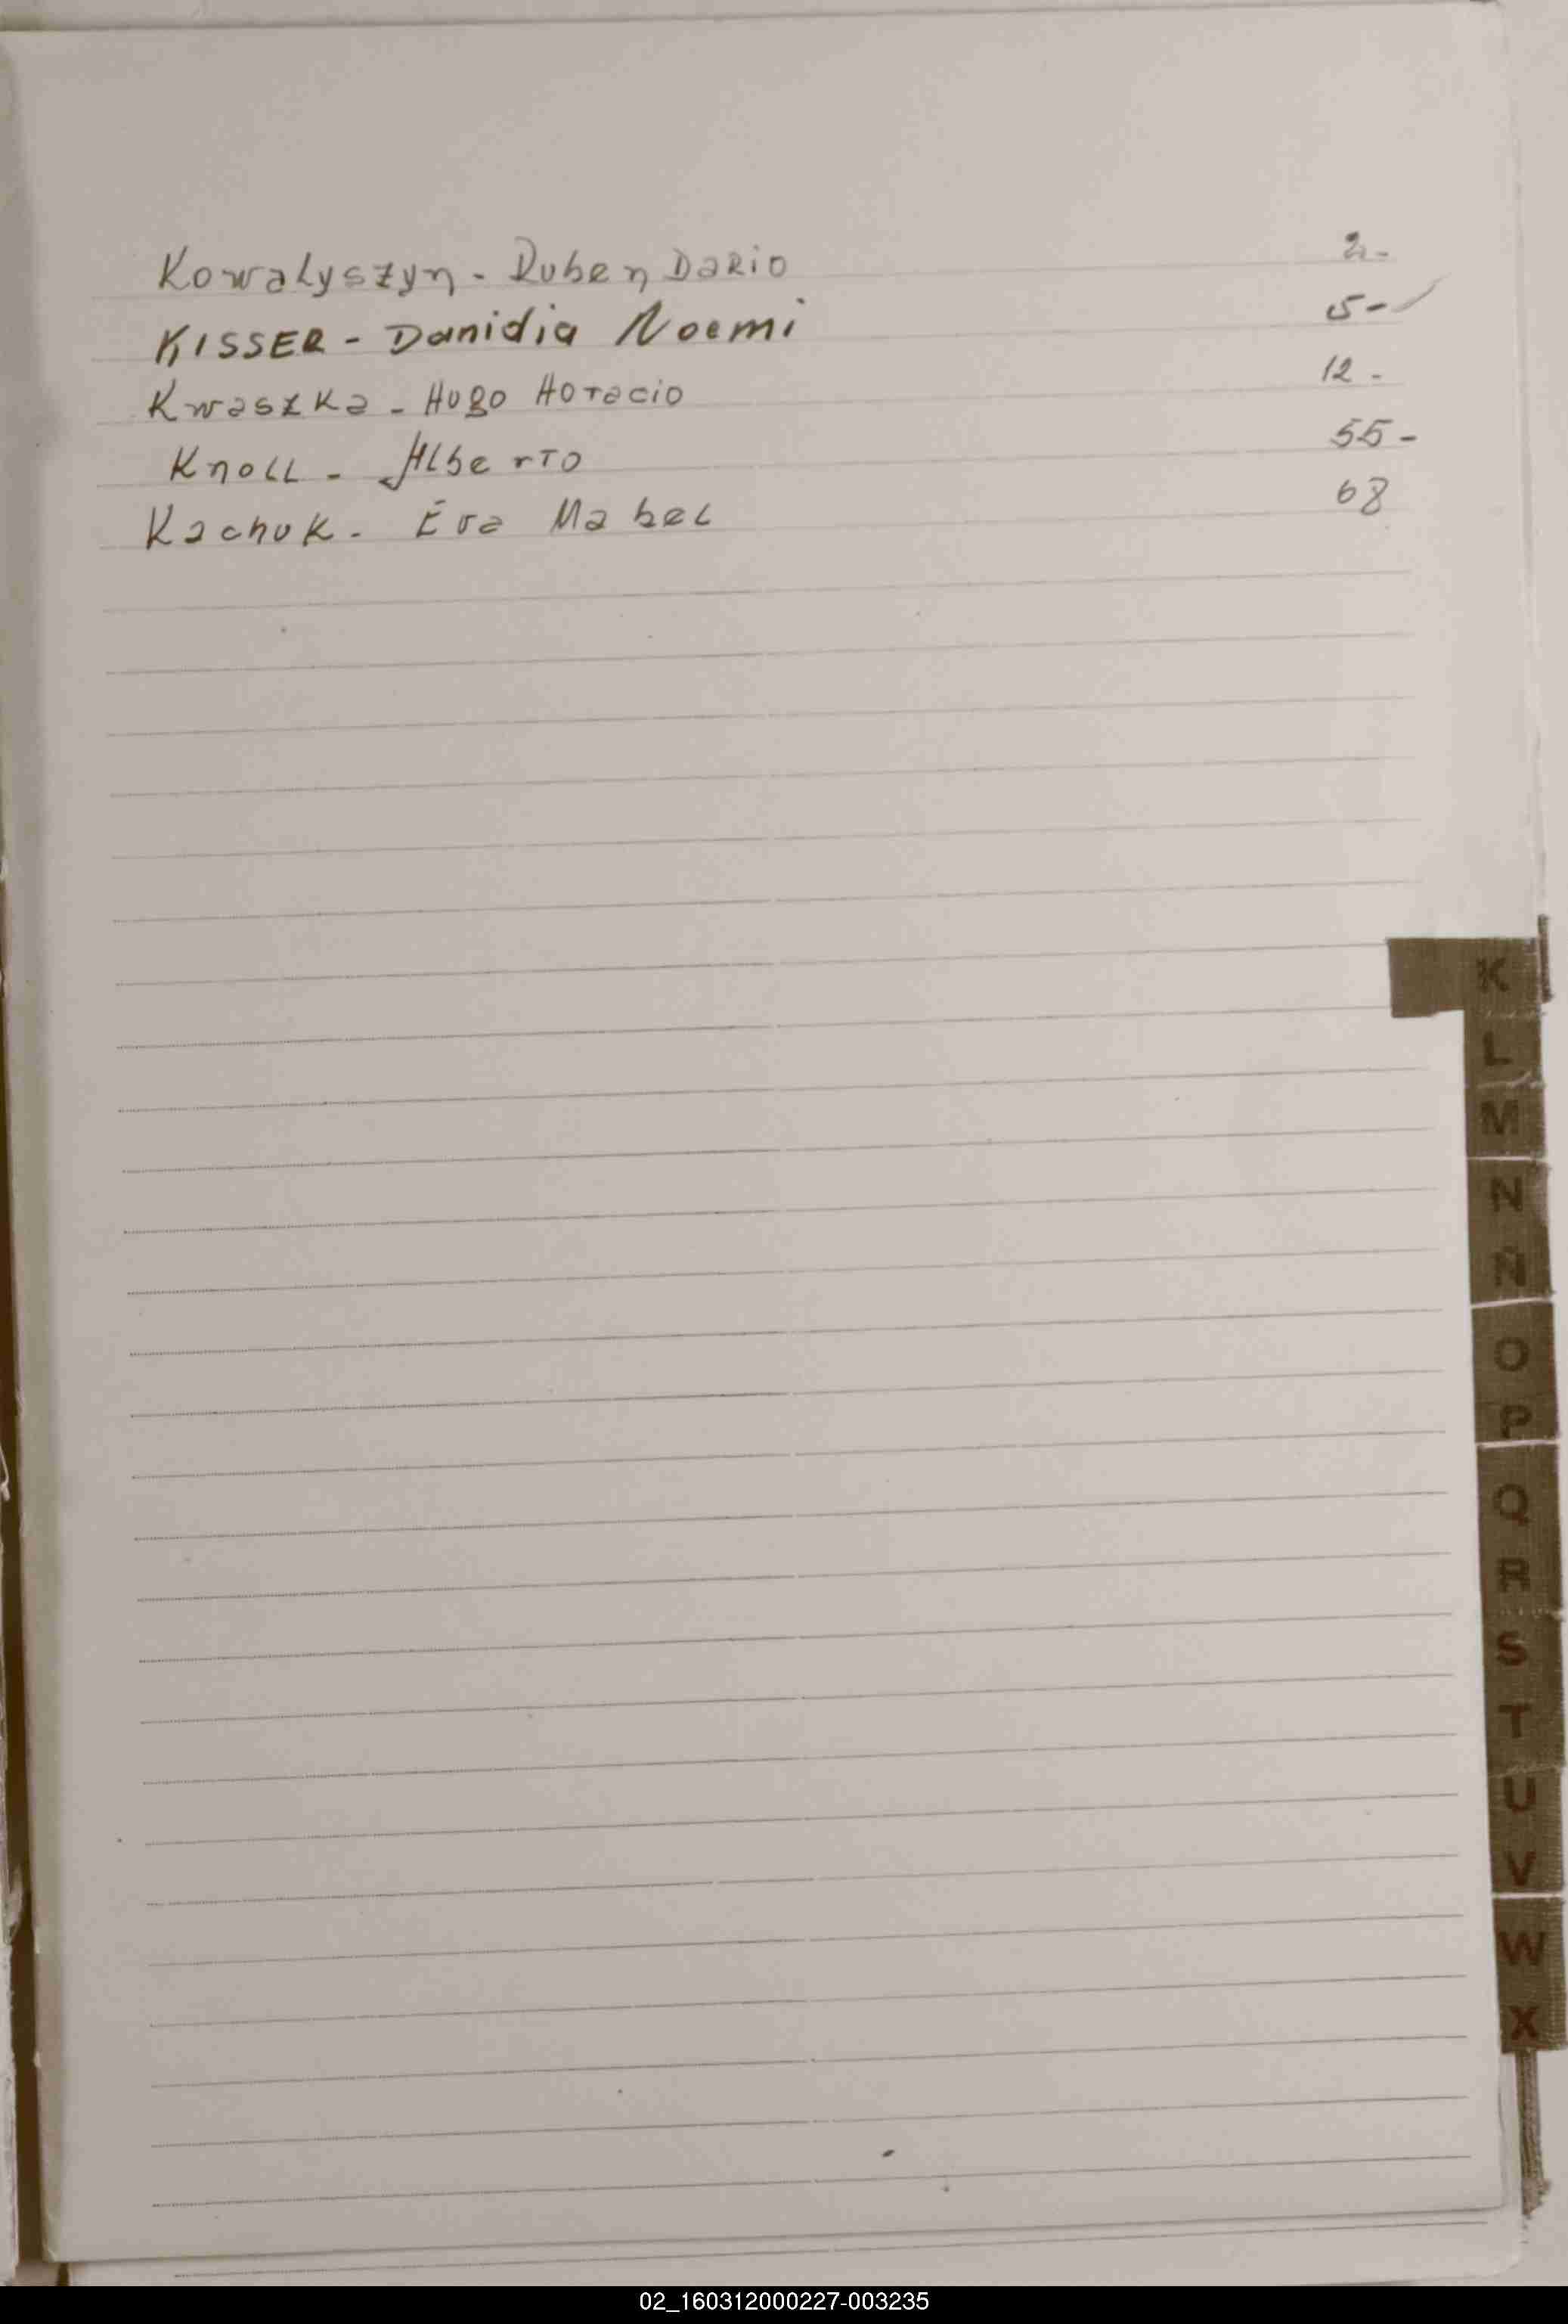 Kowalyszyn - Ruben Dario 2-
KISSER - Danidia Noemi 5-
Kwaszka - Hugo Horacio 12-
Knoll - Alberto 55-
Kachuk - Eva Mabel 68
K
L
M
N
Ñ
O
P
Q
R
S
T
U
V
W
X
02_160312000227-003235